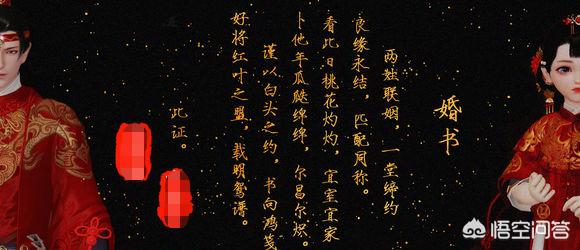 婚书
两姓联姻，一堂缔约
良缘永结，匹配同称。
看此日桃花灼灼，宜室宜家
卜他年瓜瓞绵绵，尔昌尔炽。
谨以白头之约，书向鸿笺
好将红叶之盟，载明鸳谱。
此证。
悟空问答